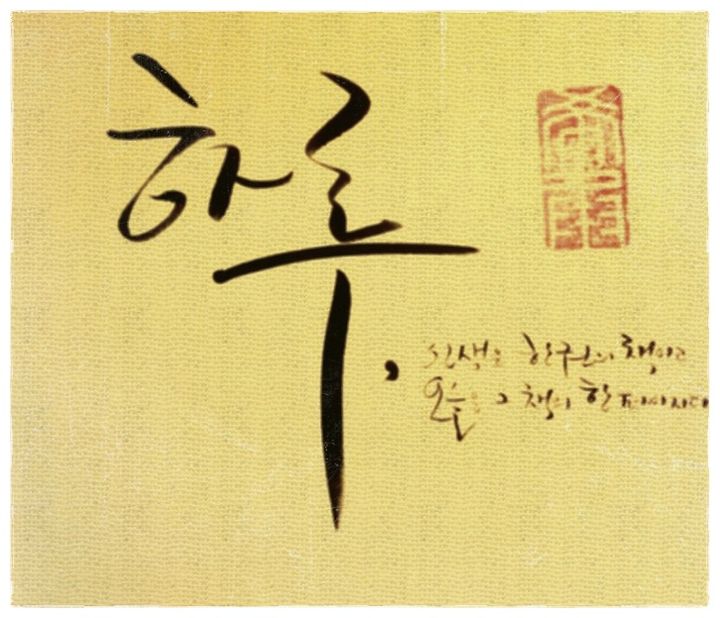 하루,
인생은 한권의 책이고
오늘은 그 책의 한 페이지다